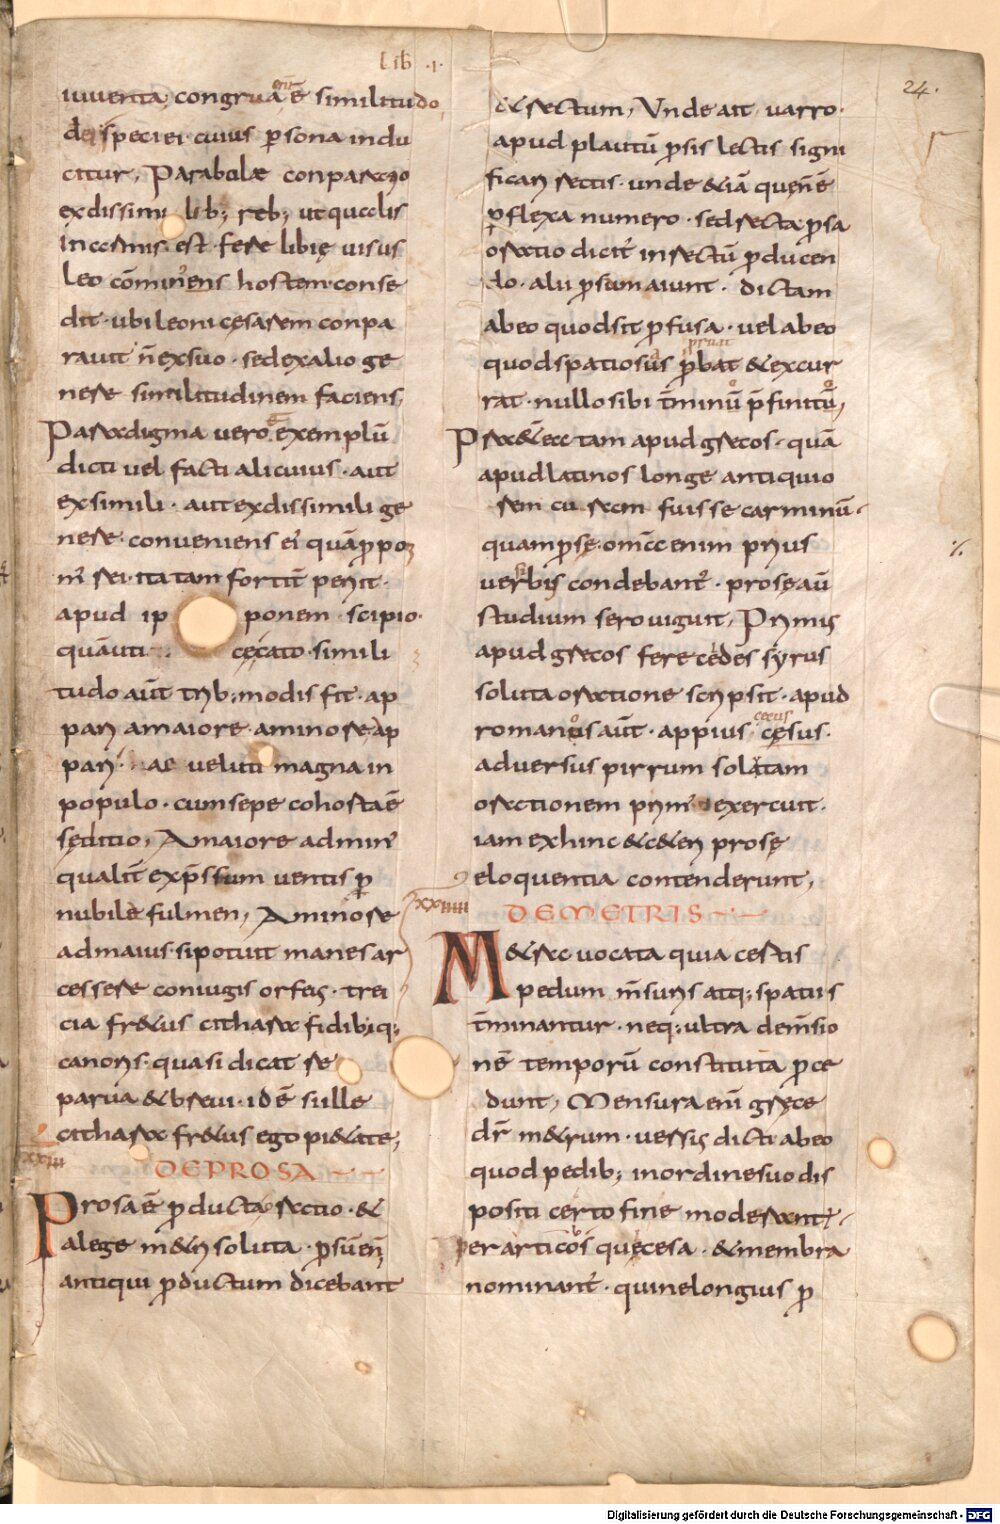 lib ·I·
24.
iuventa congrua ē similitudo
de speciei cuius psona indu
citur, Parabolae conparatio
ex dissimilib; reb; ut qualis
in est fere libię visus
leo cōminens hostem conse
dit· ubi leoni cęsarem conpa
ravit n̄ ex suo· sed ex alio ge
nere similitudinem faciens,
Paradigma vero exemplū
dicti vel facti alicuius· aut
ex simili· aut ex dissimili ge
nere· conveniens ei quā ppo
ita tam fortit̄ perit·
apud ip ponem scipio·
quā uti cę cato· simili
tudo aūt trib; modis fit· a p
pari a maiore· a minore· a p
pari· ac veluti magna in
populo· cum sepe cohorta ē
sęditio, A maiore ad min
qualit̄ exp̄ssum ventis p
nubile fulmen, A minore
ad maius· si potuit manes ar
cessere coniugis orfeis· trei
cia fr&us cithara fidibusq;
canoris· quasi dicat re
parva & brevi· id ē si ille
cithara fr&us ego pi&ate,
XXIII
DE PROSA
Prosa ē pducta ratio· &
a lege m&ri soluta· psū eni
antiqui pductum dicebant
& rectum, Unde ait varro·
apud plautū psis lectis signi
ficari rectis· unde &iā quę n̄ ē
pflexa numero· sed recta psa
oratio dicit̄ in rectū pducen
do· alii psam aiunt· dictam
ab eo quod sit pfusa· vel ab eo
quod spatiosius p̄bat & excur
rat· nullo sibi t̄minū p̄finitū,
Praet&ea tam apud grecos· quā
apud latinos longe antiquio
rem curam fuisse carminū·
quam prosę· omnia enim prius
versibus condebant̄· prosę aū
studium sero viguit, Primis
apud grecos fere cędēs syrus
soluta oratione scripsit· apud
romanos aūt· appius cęsus· cecus
adversus pirrum solutam
orationem prim exercuit·
iam exhinc & c&eri prose
eloquentia contenderunt,
XXIIII
DE METRIS
M&ra vocata quia certis
pedum m̄suris atq; spatiis
t̄minantur· neq; ultra dem̄sio
nē temporū constituta pce
dunt, Mensura eni gręce
dr̄ m&rum· versis dicti ab eo
quod pedib; in ordine suo dis
positi certo fine moderant̄·
per articos quę cesa· & membra
nominant̄· qui ne longius p
Digitalisierung gefördert durch die Deutsche Forschungsgemeinschaft - DFG